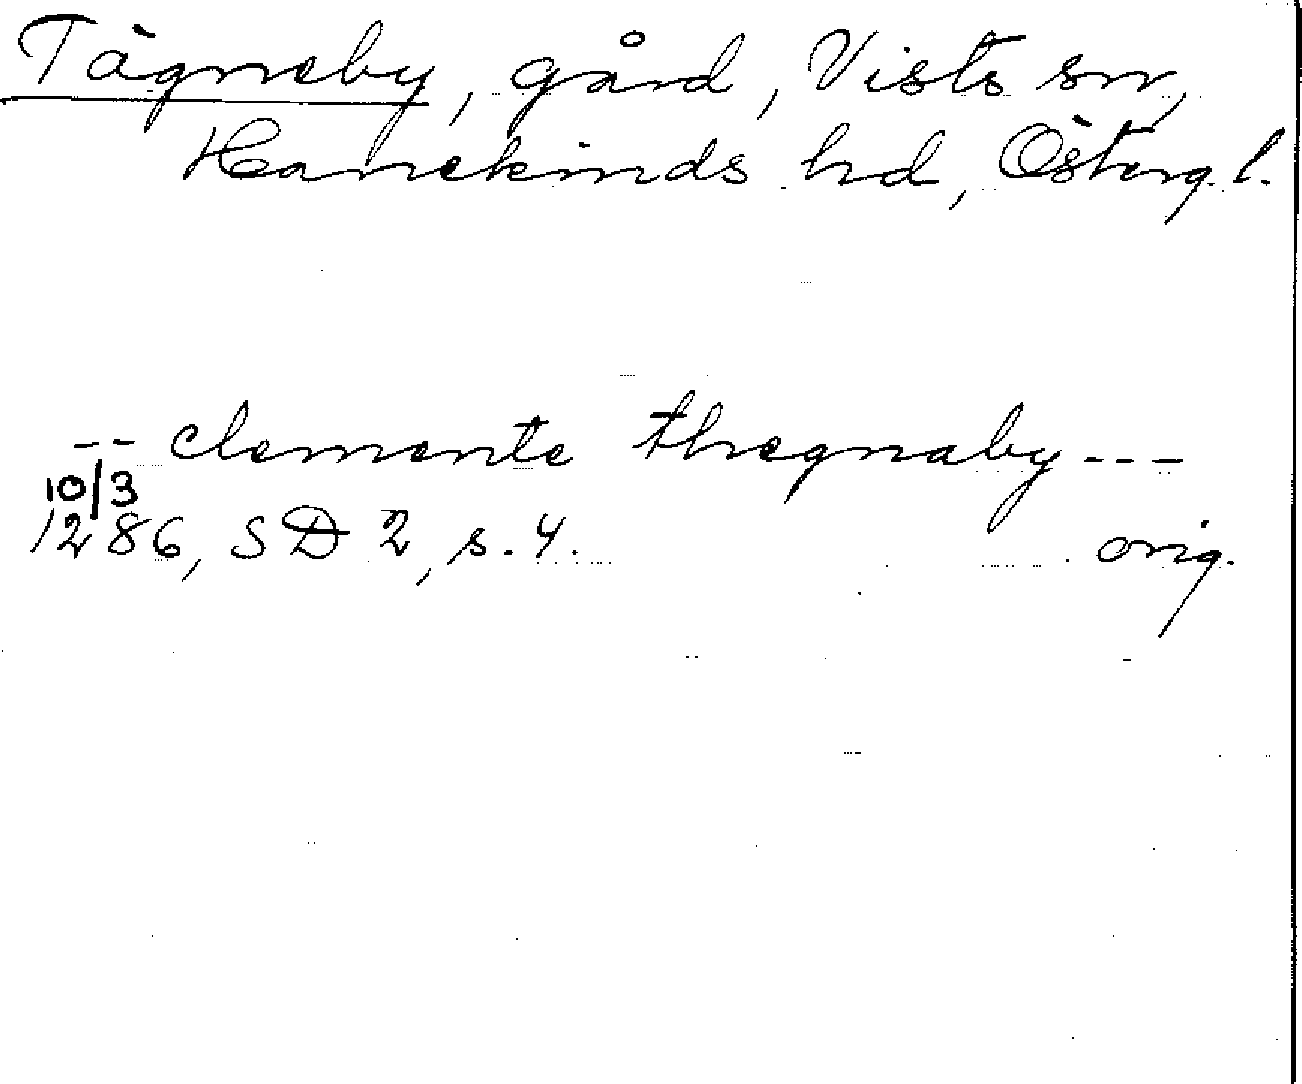 Tägneby, gård, Vists sn,
Hanekinds hd, Österg. l.
-- clemente thegnaby ---
10/3
1286, SD 2, s. 4. orig.